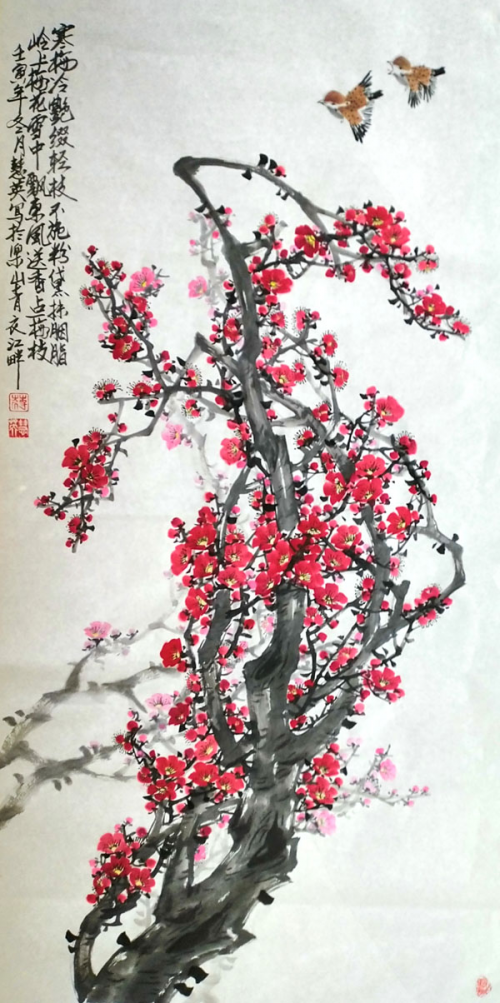 寒梅冷艷缀轻枝不施粉黛抹胭脂
岭上梅花雪中飘东风送香点梅枝
壬寅年冬月慧英写於梁山青衣江畔